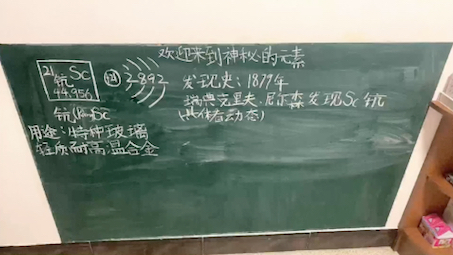 欢迎来到神秘的元素
21 Sc
钪
44.956
+21 2 8 9 2
发现史：1879年
瑞典克里夫、尼尔森发现Sc 钪
钪 Sc
用途：特种玻璃
轻质耐高温合金